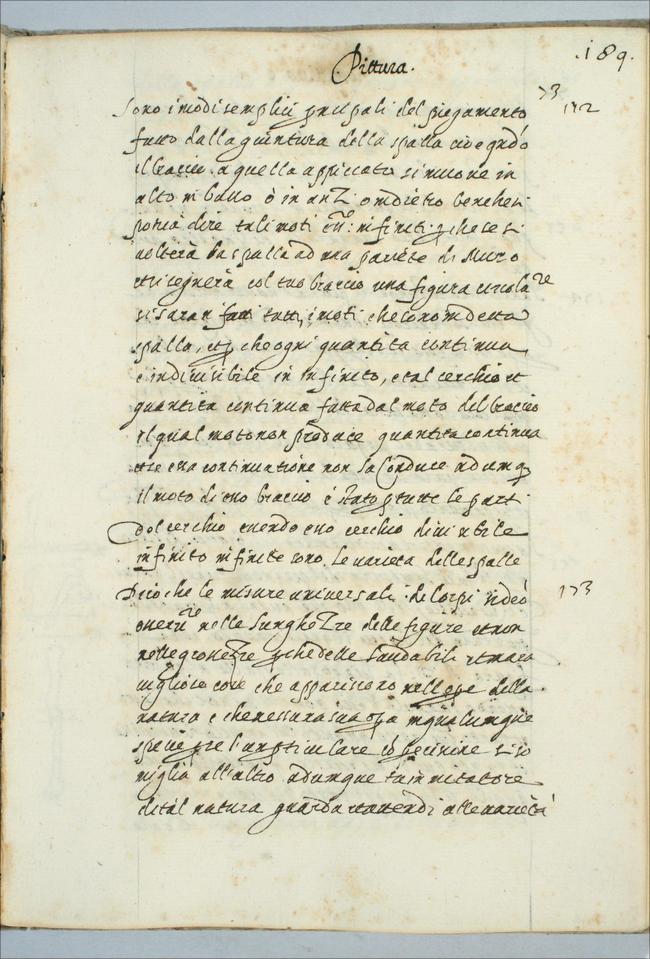 .189.
Pittura.
73
172
Sono i modi semplici principali del piegamento
fatto dalla giuntura della spalla cioe quãdo
il braccio a quella appiccato si muove in
alto in basso o in anzi o indietro benche si
potria dire tali moti infiniti che se si
volterà la spalla ad una pariete di Muro
et si segnerà col tuo braccio una figura circolare
si saran fatti tutti i moti che sono in detta
spalla, et che ogni quantita continua
e indivisibile in infinito, e tal cerchio et
quantita continua fatta dal moto del braccio
il qual moto non produce quantita continua
continuatione non la Conduce adunq̃
il moto di eso braccio è stato p̃ tutte le parti
del cerchio essendo eso cerchio divisibile
infinito infinite sono le varieta delle spalle
173
Dico che le misure universali de Corpi si deõ
nelle lunghezze delle figure et non
nelle grossezze p̃che delle laudabili et mara
vigliose cose che appariscono nell ope della
natura e che nessuna sua opa in qualunque
spetie p̃ se l'un particulare cõ precisione si so
miglia all'altro adunque tu imitatore
di tal natura guarda et attendi alle varietà